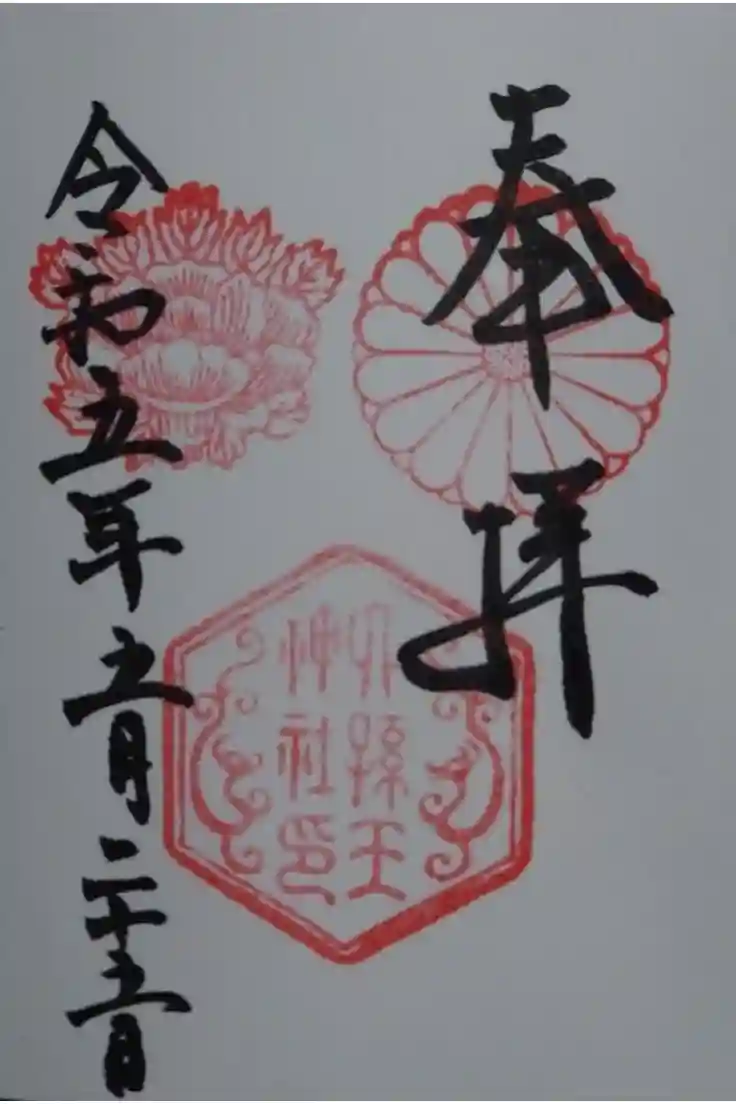 奉拝
六孫王
神社印
令和五年五月二十五日